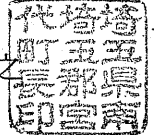 埼玉県南
埼玉郡宮
代町長印